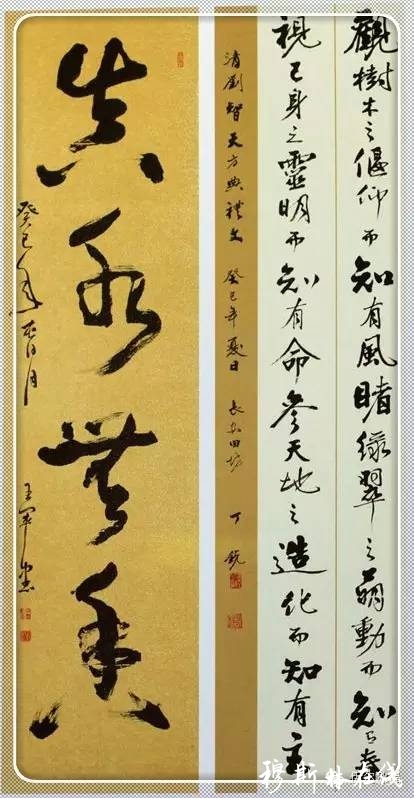 觀樹木之偃仰而知有風睹綠翠之萌動而知有春
視己身之靈明而知有命參天地之造化而知有主
清劉智天方典禮文 癸巳年夏日 長安田坊 丁銳
真水無香
癸巳年春月
王军
穆斯林在线